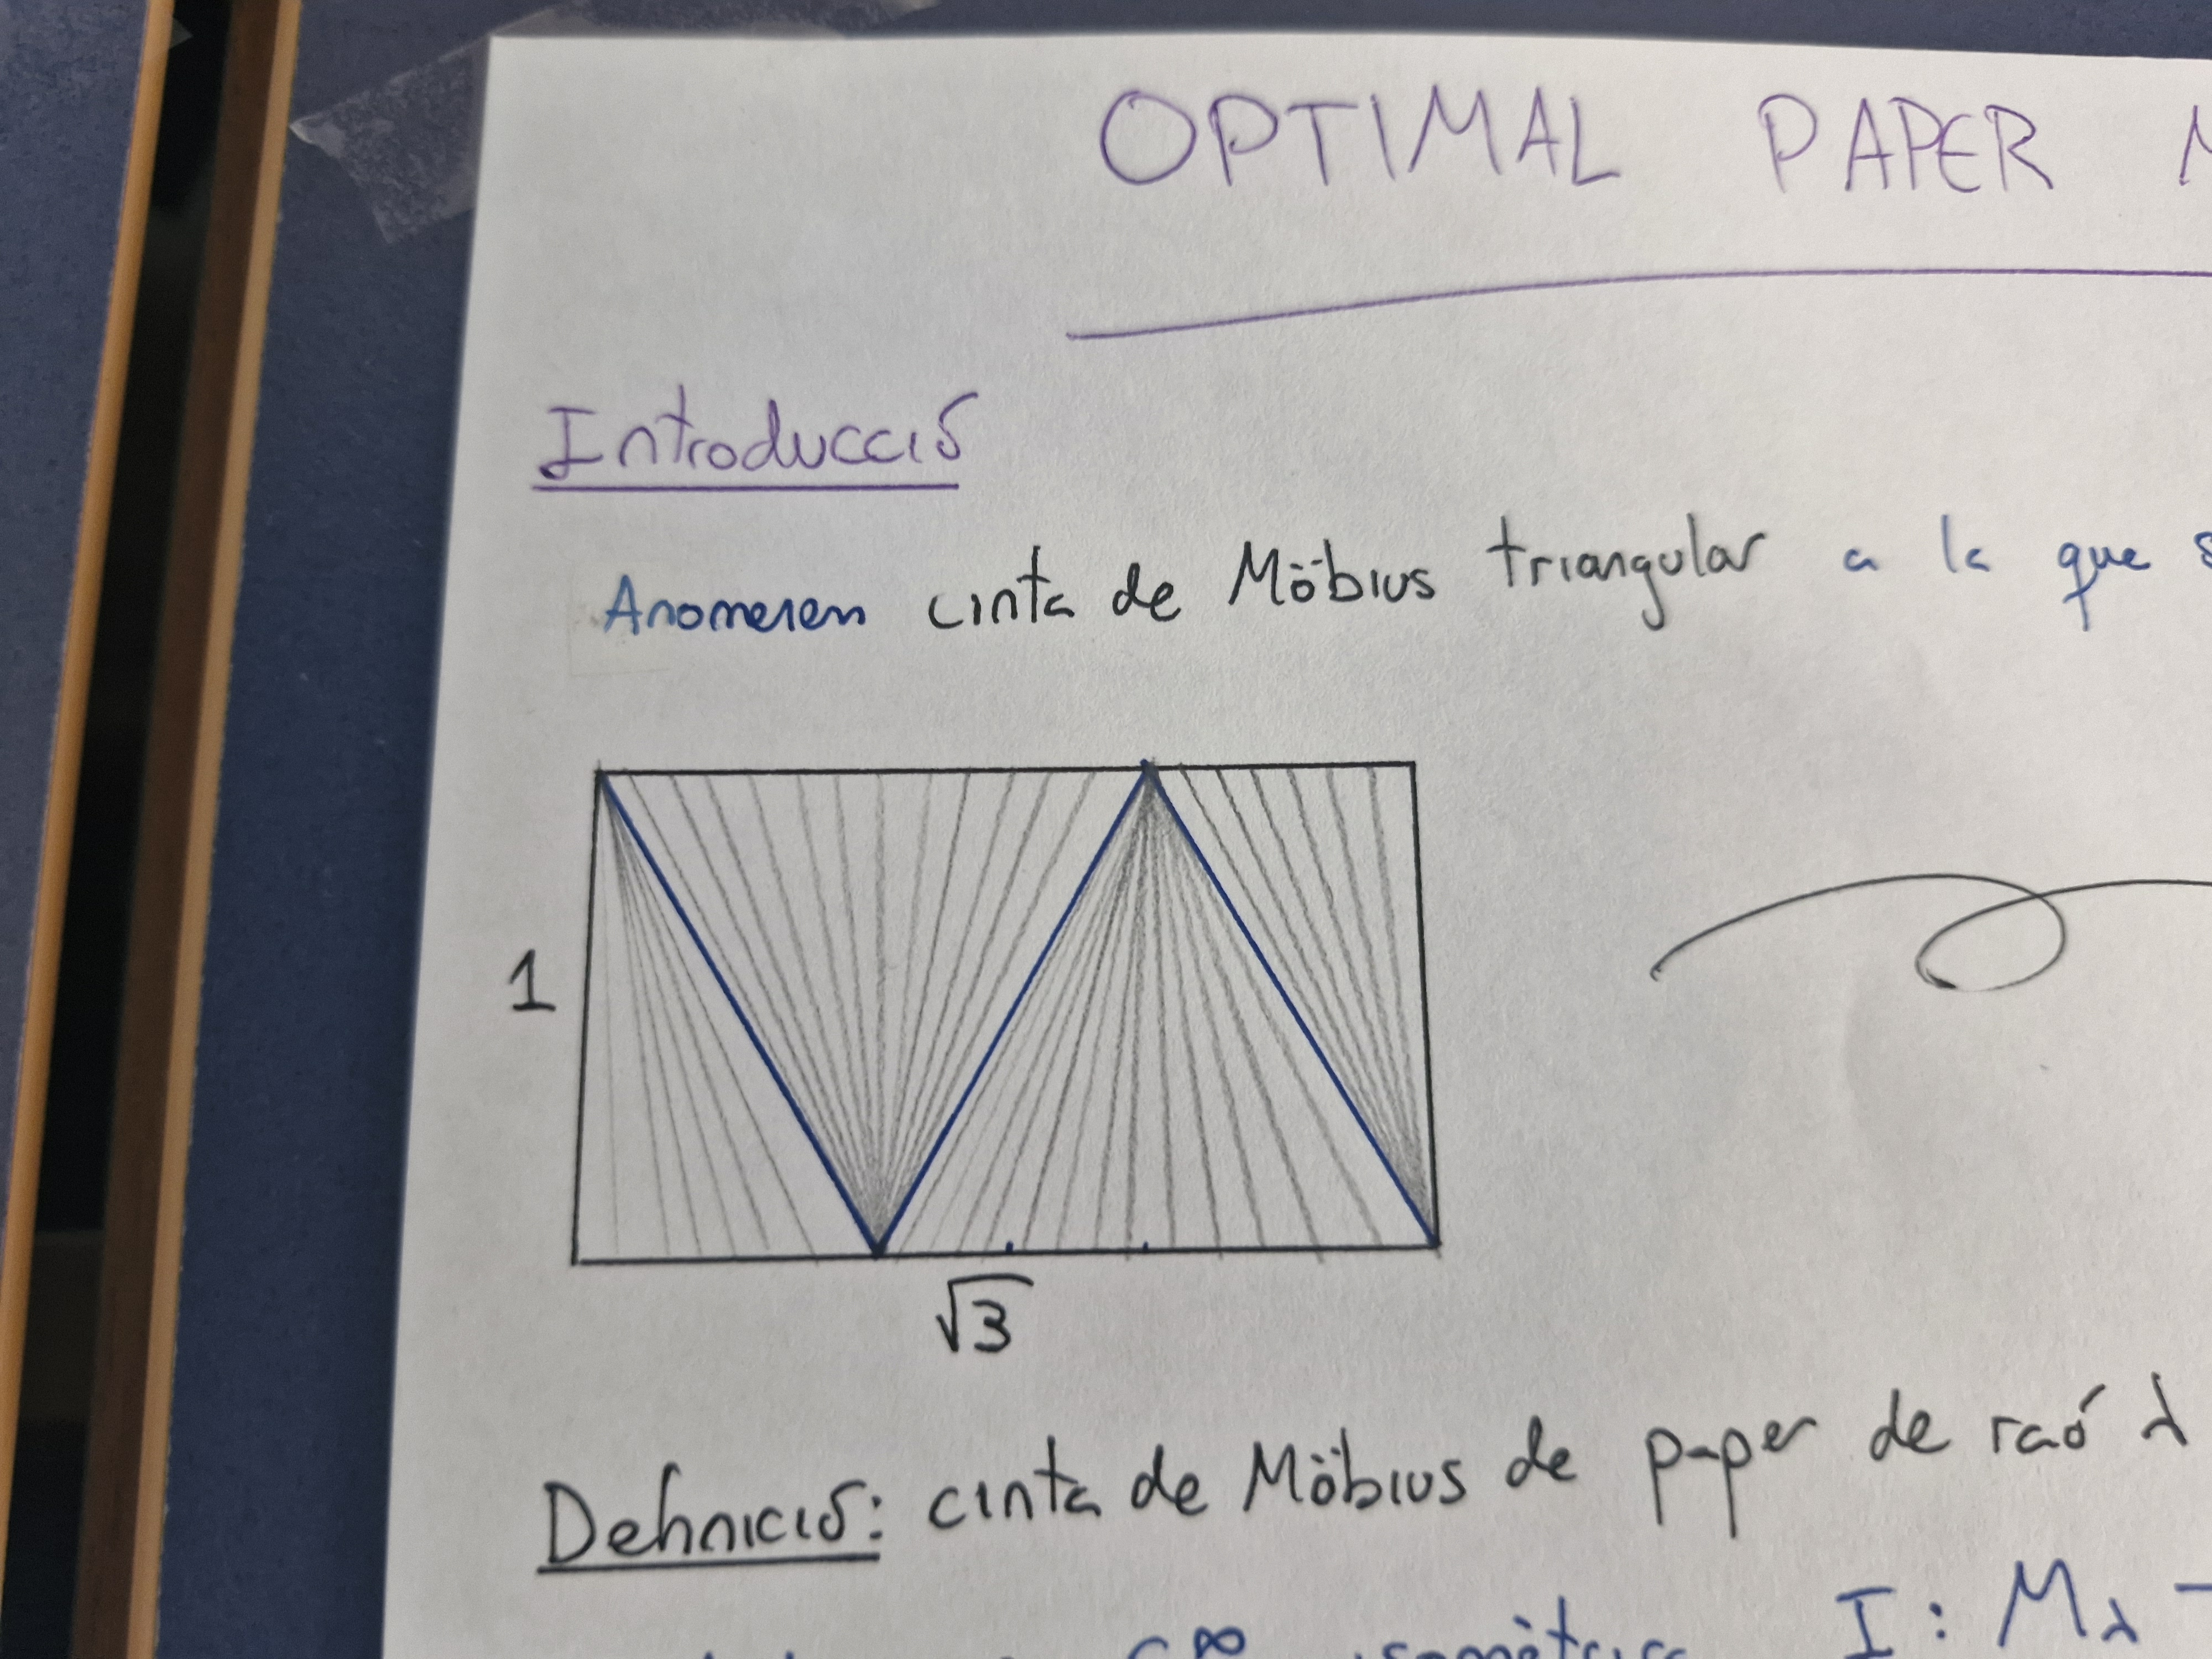 OPTIMAL PAPER
Introducció
Anomenem cinta de Möbius triangular a la que
1
√3
Definició: cinta de Möbius de paper de raó λ
C∞ isomètrica I : Mλ